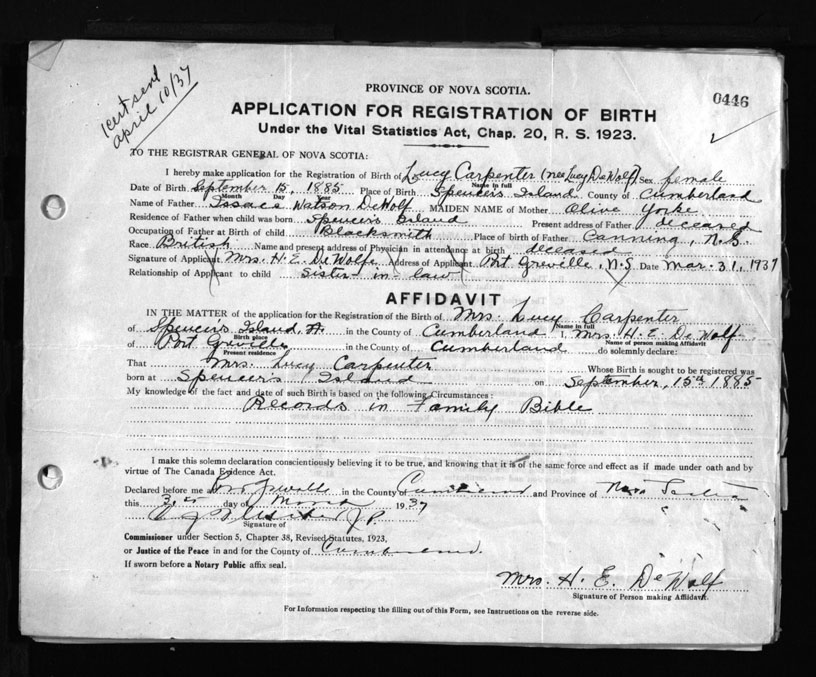 cert sent
april 10/37
PROVINCE OF NOVA SCOTIA.
0446
APPLICATION FOR REGISTRATION OF BIRTH
Under the Vital Statistics Act, Chap. 20, R. S. 1923.
TO THE REGISTRAR GENERAL OF NOVA SCOTIA:
I hereby make application for the Registration of Birth of Lucy Carpenter (nee Lucy DeWolf) Sex female
Name in full
Date of Birth September 15, 1885 Place of Birth Spencers Island County of Cumberland
Month Day Year
Name of Father Issacs Watson DeWolf MAIDEN NAME of Mother Olive Yorke
Residence of Father when child was born Spencers Island Present address of Father deceased
Occupation of Father at Birth of child Blacksmith Place of birth of Father Canning, N.S.
Race British Name and present address of Physician in attendance at birth deceased
Signature of Applicant Mrs. H. E. DeWolfe Address of Applicant Port Greville, N.S. Date Mar. 31, 1937
Relationship of Applicant to child Sister-in-law
AFFIDAVIT
IN THE MATTER of the application for the Registration of the Birth of Mrs. Lucy Carpenter
Name in full
of Spencer's Island, in the County of Cumberland I, Mrs. H. E. DeWolf
Birth place Name of person making Affidavit
of Port Greville in the County of Cumberland do solemnly declare:
Present residence
That Mrs. Lucy Carpenter Whose Birth is sought to be registered was
born at Spencers Island on September, 15th 1885
My knowledge of the fact and date of such Birth is based on the following Circumstances:
Records in Family Bible
I make this solemn declaration conscientiously believing it to be true, and knowing that it is of the same force and effect as if made under oath and by
virtue of The Canada Evidence Act.
Declared before me at in the County of Cumberland and Province of Nova Scotia
this day of 1937
J.P.
Signature of
Commissioner under Section 5, Chapter 38, Revised Statutes, 1923,
or Justice of the Peace in and for the County of Cumberland.
If sworn before a Notary Public affix seal.
Mrs. H. E. DeWolf
Signature of Person making Affidavit.
For Information respecting the filling out of this Form, see Instructions on the reverse side.